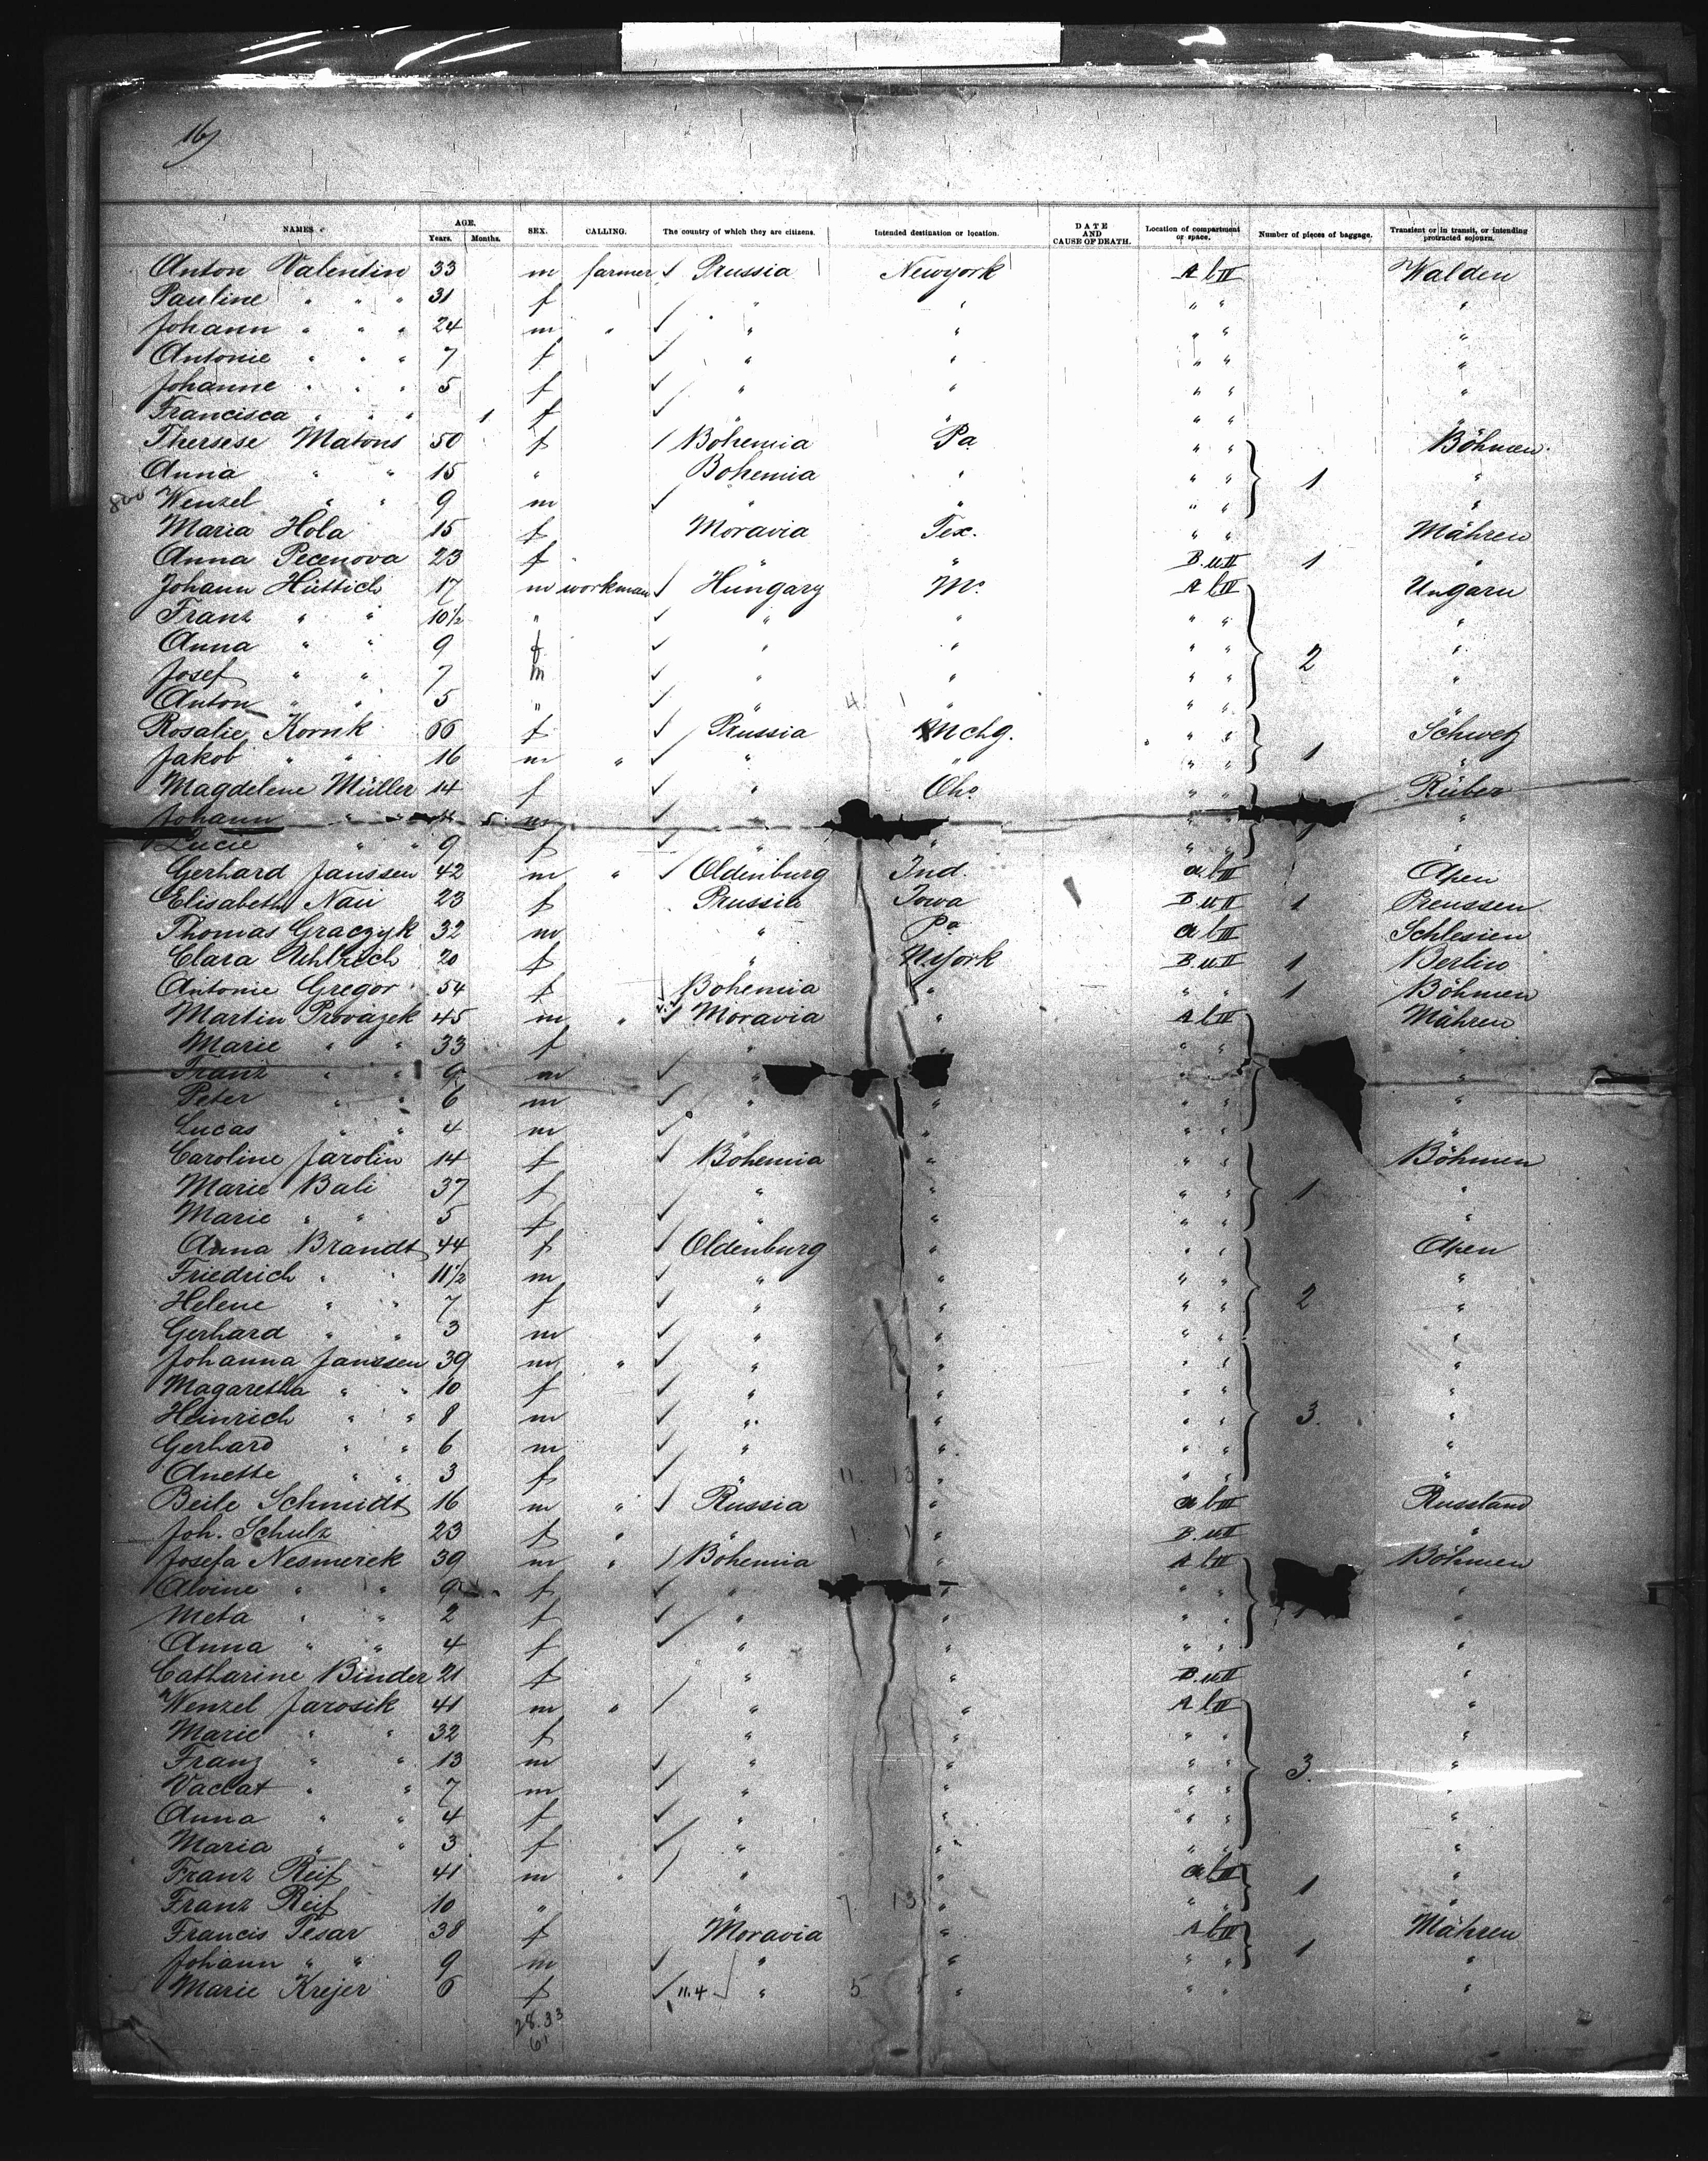 16)
NAMES. AGE. Years. Months. SEX. CALLING. The country of which they are citizens. Intended destination or location. DATE AND CAUSE OF DEATH. Location of compartment or space. Number of pieces of baggage. Transient or in transit, or intending protracted sojourn.
Anton Valentin 33 m farmer ✓ Prussia Newyork A b II Walden
Pauline " " " 31 f " " " " "
Johann " " " 24 m " ✓ " " " " "
Antonie " " " 7 f ✓ " " " " "
Johanne " " " 5 f ✓ " " " " "
Francisca " " " 1 f ✓ " " " " "
Thersese Matous 50 f / Bohemia Pa. " " Böhmen.
Anna " " 15 " Bohemia " " " 1 "
800 Wenzel " " 9 m ✓ " " " " "
Maria Hola 15 f Moravia Tex. " " Mähren
Anna Pecenova 23 f " " B. u II 1 "
Johann Hüttich 17 m workman ✓ Hungary Mo. A b II Ungarn
Franz " " 10½ " ✓ " " " " "
Anna " " 9 f ✓ " " " " "
Josef " " 7 m ✓ " " " " 2 "
Anton " " 5 " ✓ " 4 1 " " " "
Rosalie Kornk 66 f ✓ Prussia Mchg. " " Schwetz
Jakob " " 16 m " ✓ " " " " 1 "
Magdelene Müller 14 f ✓ " Oho. " "
Johann " " 5 m ✓ " " "
Lucie " " 9 f ✓ " " " " "
Gerhard Janssen 42 m " ✓ Oldenburg Ind. a b II Apen
Elisabeth Nau 23 f Prussia Iowa B u II 1 Preussen
Thomas Graczyk 32 m " Pa. a b II Schlesien
Clara 20 f " N.york B. u II 1 Berlin
Antonie Gregor 54 f Bohemia " " " 1 Böhmen
Martin Provazek 45 m " ✓ Moravia " A b II Mähren
Marie " " 33 f " " " " "
Franz " " 9 m ✓ " " "
Peter " " 6 m ✓ " " " " "
Lucas " " 4 m ✓ " " " " "
Caroline Jarolin 14 f ✓ Bohemia " " " Böhmen
Marie Bali 37 f ✓ " " " " 1 "
Marie " " 5 f ✓ " " " " "
Anna Brandt 44 f ✓ Oldenburg " " " Apen
Friedrich " " 11½ m ✓ " " " " "
Helene " " 7 f ✓ " " " " 2 "
Gerhard " " 3 m ✓ " " " " "
Johanna Janssen 39 m " ✓ " " " " "
Magaretha " " 10 f ✓ " " " " "
Heinrich " " 8 m ✓ " " " " 3. "
Gerhard " " 6 m ✓ " " " " "
Anette " " 3 f ✓ " 11. 13 " " " "
Beile Schmidt 16 m " ✓ Russia " a b II Russland
Joh. Schulz 23 f " " 1 1 " B. u II "
Josefa Nesmerek 39 m " / Bohemia " A b II Böhmen
Alvine " " 9 f ✓ " " " " "
Meta " " 2 f ✓ " " " " "
Anna " " 4 f ✓ " " " " "
Catharine Binder 21 f " " B. u II "
Wenzel Jarosik 41 m " / " " A b II "
Marie " " 32 f " " " " "
Franz " " 13 m ✓ " " " " "
Vaclat " " 7 m ✓ " " " " 3. "
Anna " " 4 f ✓ " " " " "
Maria " " 3 f ✓ " " " " "
Franz Reif 41 m " / " " a b II 1 "
Franz Reif 10 " " 7. 13 " " " "
Francis Tesar 38 f Moravia " A b II Mähren
Johann " " 9 m ✓ " " " " 1 "
Marie Krejer 6 f ✓ 11.4 " 5 " " " "
28.33
61